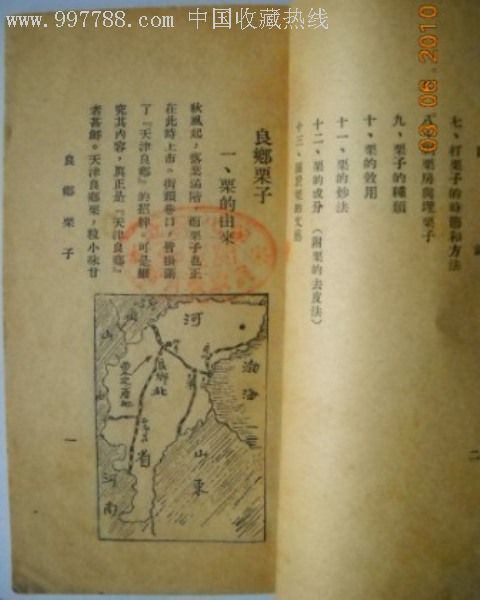 www.997788.com 中国收藏热线
09 06 2010
七、打栗子的時節和方法
栗房與埋栗子
九、栗子的種類
十、栗的效用
十一、栗的炒法
十二、栗的成分(附栗的去皮法)
十三、
二
良鄉栗子
一、栗的由來
秋風起,落葉滿階,而栗子也正
在此時上市。街頭巷口,皆掛滿
了『天津良鄉』的招牌。可是細
究其內容,真正是『天津良鄉』
者甚鮮。天津良鄉栗,粒小味甘
良鄉栗子
一
河
北
省
良鄉
渤海
山東
山
河南